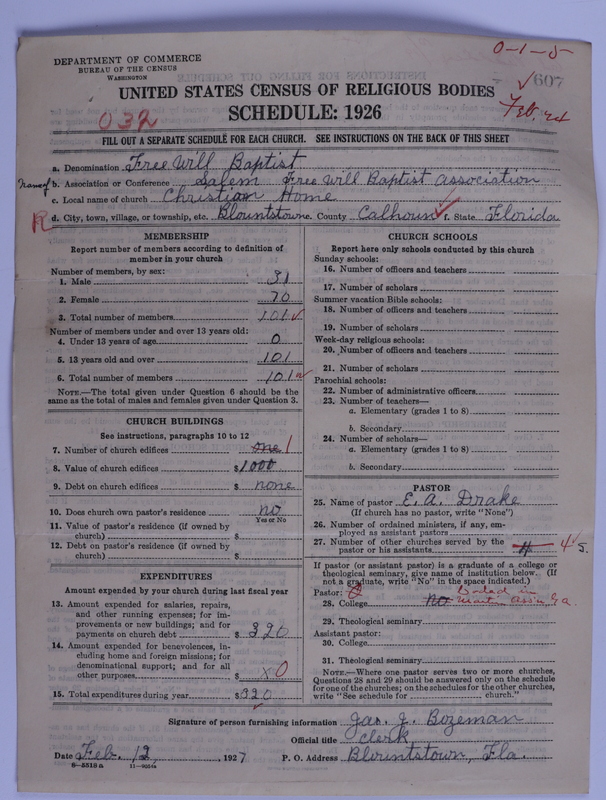 0-1-5
DEPARTMENT OF COMMERCE
BUREAU OF THE CENSUS
WASHINGTON
607
UNITED STATES CENSUS OF RELIGIOUS BODIES
SCHEDULE: 1926
Feb 24
032
FILL OUT A SEPARATE SCHEDULE FOR EACH CHURCH. SEE INSTRUCTIONS ON THE BACK OF THIS SHEET
a. Denomination Free Will Baptist
Name of b. Association or Conference Salem Free Will Baptist Association
c. Local name of church Christian Home
R d. City, town, village, or township, etc. Blountstown e. County Calhoun f. State Florida
MEMBERSHIP
Report number of members according to definition of
member in your church
Number of members, by sex:
1. Male 31
2. Female 70
3. Total number of members 101
Number of members under and over 13 years old:
4. Under 13 years of age 0
5. 13 years old and over 101
6. Total number of members 101
NOTE.—The total given under Question 6 should be the
same as the total of males and females given under Question 3.
CHURCH BUILDINGS
See instructions, paragraphs 10 to 12
7. Number of church edifices one 1
8. Value of church edifices $ 1000
9. Debt on church edifices $ none
10. Does church own pastor's residence no
Yes or No
11. Value of pastor's residence (if owned by
church) $
12. Debt on pastor's residence (if owned by
church) $
EXPENDITURES
Amount expended by your church during last fiscal year
13. Amount expended for salaries, repairs,
and other running expenses; for im-
provements or new buildings; and for
payments on church debt $ 320
14. Amount expended for benevolences, in-
cluding home and foreign missions; for
denominational support; and for all
other purposes $ x0
15. Total expenditures during year $ 320
CHURCH SCHOOLS
Report here only schools conducted by this church
Sunday schools:
16. Number of officers and teachers
17. Number of scholars
Summer vacation Bible schools:
18. Number of officers and teachers
19. Number of scholars
Week-day religious schools:
20. Number of officers and teachers
21. Number of scholars
Parochial schools:
22. Number of administrative officers
23. Number of teachers—
a. Elementary (grades 1 to 8)
b. Secondary
24. Number of scholars—
a. Elementary (grades 1 to 8)
b. Secondary
PASTOR
25. Name of pastor E. A. Drake
(If church has no pastor, write "None")
26. Number of ordained ministers, if any, em-
ployed as assistant pastors
27. Number of other churches served by the
pastor or his assistants 4 4 5.
If pastor (or assistant pastor) is a graduate of a college or
theological seminary, give name of institution below. (If
not a graduate, write "No" in the space indicated.)
Pastor:
28. College no
29. Theological seminary
Assistant pastor:
30. College
31. Theological seminary
NOTE.—Where one pastor serves two or more churches,
Questions 28 and 29 should be answered only on the schedule
for one of the churches; on the schedules for the other churches,
write "See schedule for church."
Signature of person furnishing information Jas. J. Bozeman
Official title clerk
Date Feb. 12, 1927 P. O. Address Blountstown, Fla.
8—5518a 11—9024a